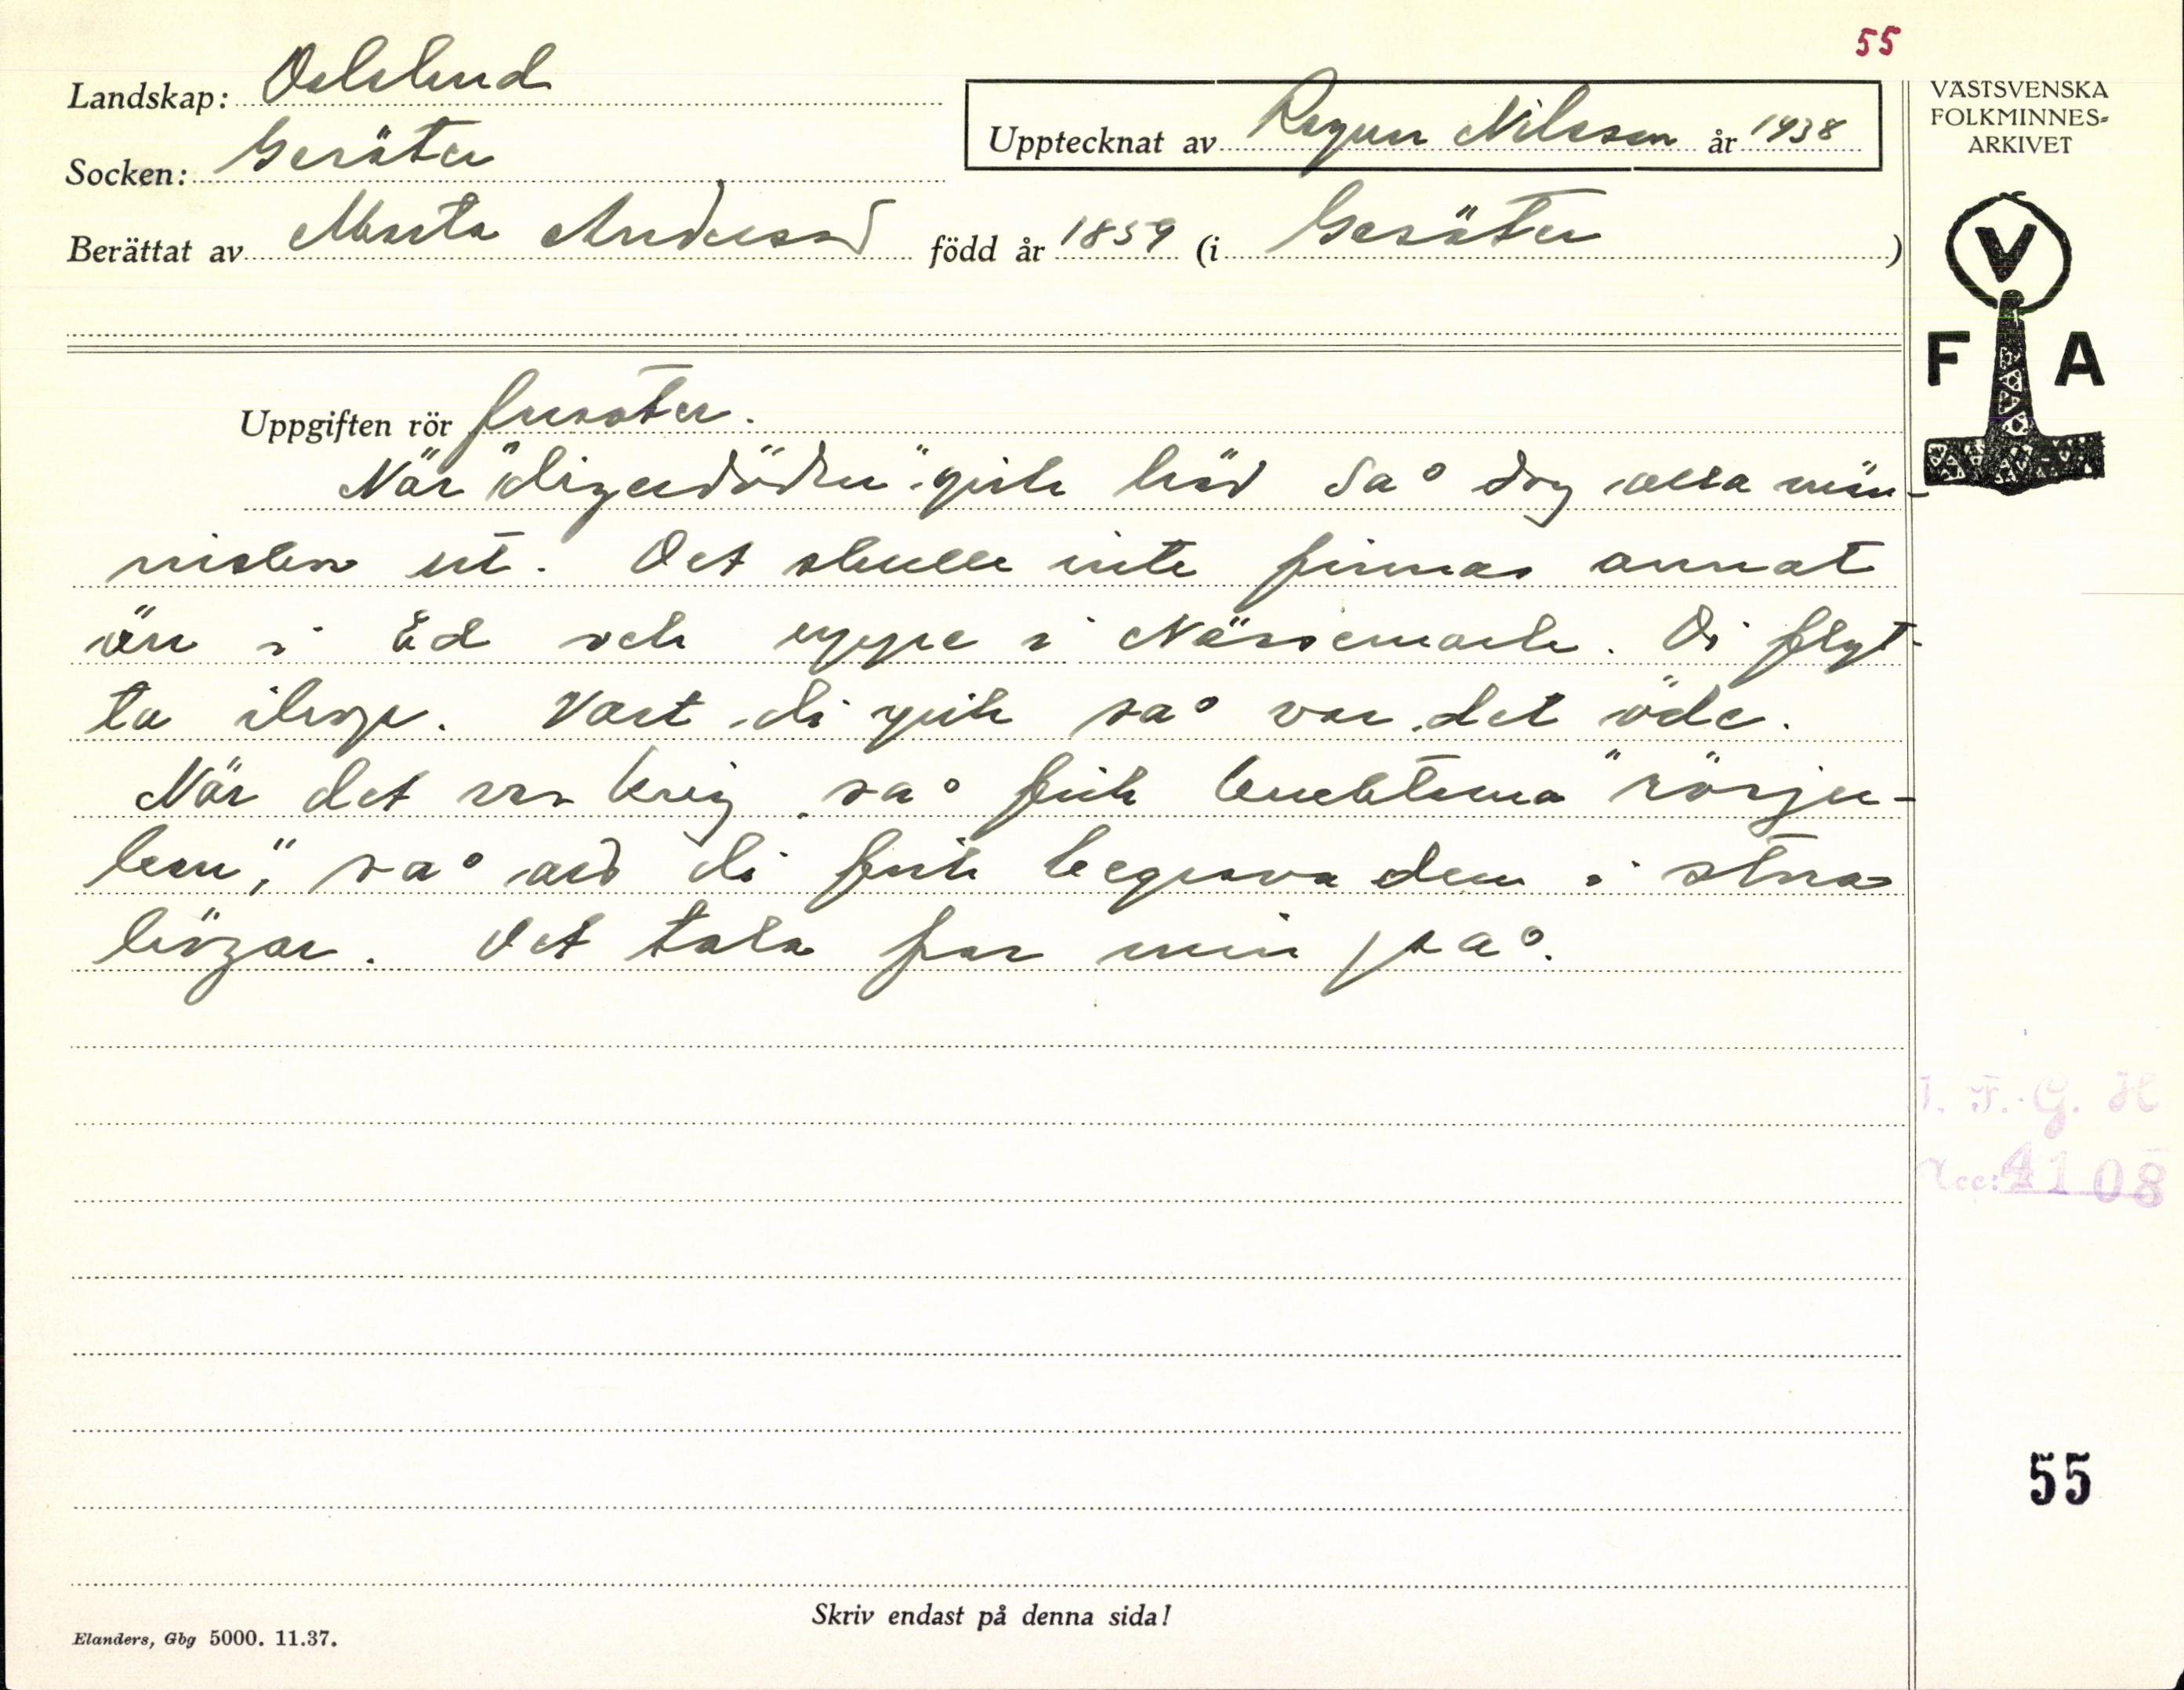 55
Landskap: Dalsland
Upptecknat av Ragnar Nilsson år 1938
Socken: Gesäter
Berättat av Marta Andersson född år 1859 (i Gesäter)
VÄSTSVENSKA
FOLKMINNES-
ARKIVET
V
F A
Uppgiften rör
När "digerdöden" gick här så dog alla män-
niskor ut. Det skulle inte finnas annat
än i Ed och uppe i Nössemark. Di flyt-
ta ihop. Vart di gick så var det öde.
När det var krig så fick knektarna "rörju-
ken", så att di fick begrava dem i stora
högar. Det tala far min på.
I. F. G. H
Acc: 4108
55
Skriv endast på denna sida!
Elanders, Gbg 5000. 11.37.